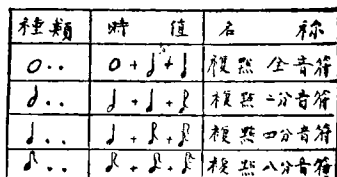 種類 時值 名称
𝅝.. 𝅝 + 𝅗𝅥 + 𝅘𝅥 複點全音符
𝅗𝅥.. 𝅗𝅥 + 𝅘𝅥 + 𝅘𝅥𝅮 複點二分音符
𝅘𝅥.. 𝅘𝅥 + 𝅘𝅥𝅮 + 𝅘𝅥𝅯 複點四分音符
𝅘𝅥𝅮.. 𝅘𝅥𝅮 + 𝅘𝅥𝅯 + 𝅘𝅥𝅰 複點八分音符